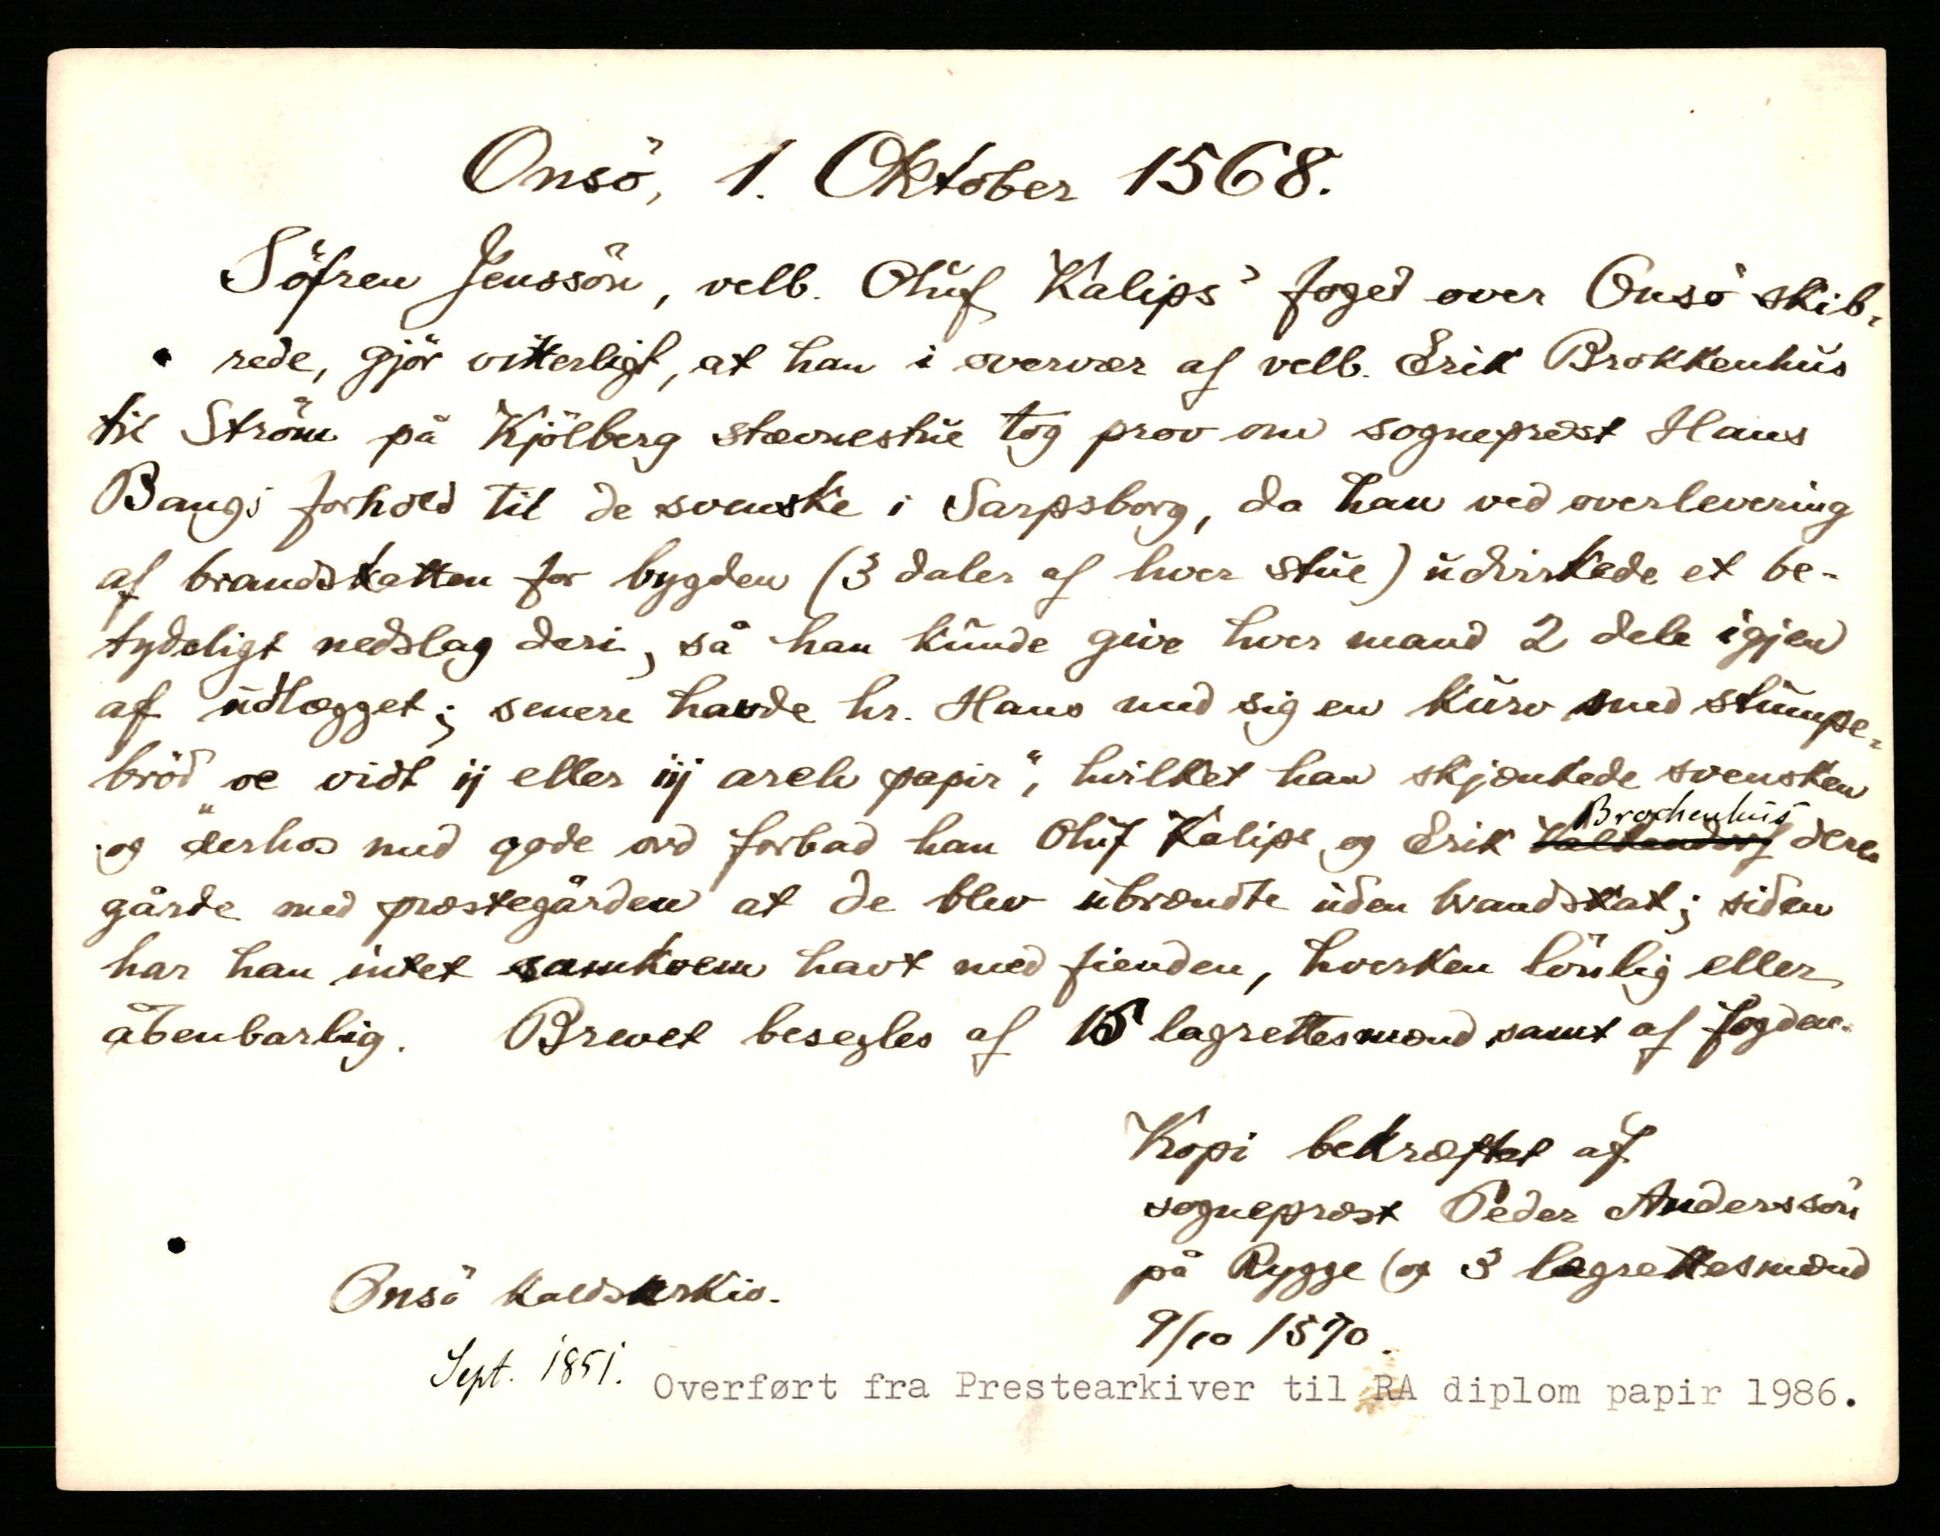 Onsö, 1. Oktober 1568.
Söfren Jenssön, velb. Oluf Kalips' foged over Onsö skib-
rede, gjör vitterligt, at han i overvær af velb. Erik Brokkenhus
til Ström på Kjölberg stævnestue tog prov om sogneprest Hans
Bangs forhold til de svenske i Sarpsborg, da han ved overlevering
af brandskatten for bygden (3 daler af hver stue) udvirkede et be-
tydeligt nedslag deri, så han kunde give hver mand 2 dele igjen
af udlægget; senere havde hr. Hans med sig en kurv med stumpe-
bröd oc vidt ij eller iij arch papir", hvilket han skjænkede svensken
og "derhos med gode ord forbad han Oluf Kalips og Erik Brochenhus deres
gårde med præstegården at de blev ubrændte uden brandskat; siden
har han intet samkvem havt med fienden, hverken lönlig eller
åbenbarlig. Brevet besegles af 15 lagrettesmænd samt af fogden.
Kopi bekræftet af
sogneprest Peder Anderssön
på Rygge (og 3 lagrettesmænd
9/10 1570.
Onsö kaldsarkiv.
Sept. 1851.
Overført fra Prestearkiver til RA diplom papir 1986.